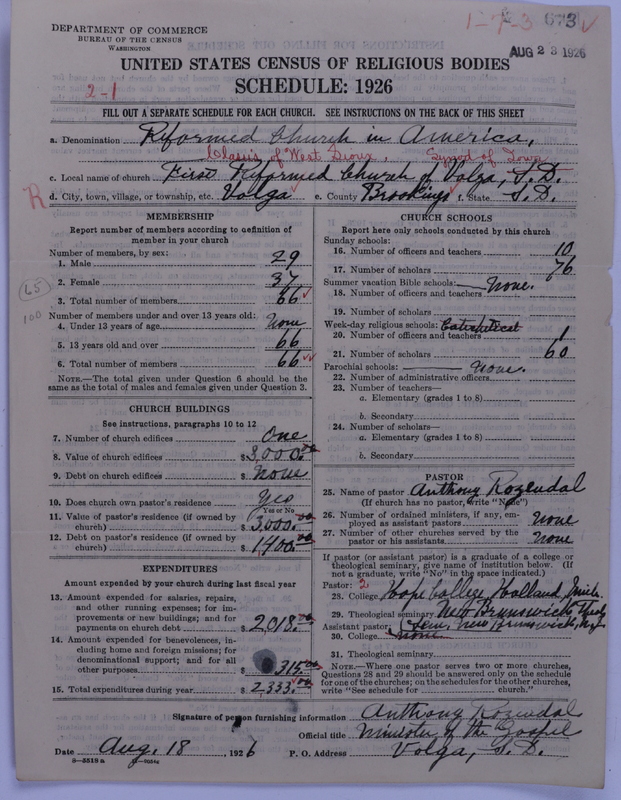 1-7-3 673 ✓
DEPARTMENT OF COMMERCE
BUREAU OF THE CENSUS
WASHINGTON
AUG 23 1926
UNITED STATES CENSUS OF RELIGIOUS BODIES
SCHEDULE: 1926
2-1
FILL OUT A SEPARATE SCHEDULE FOR EACH CHURCH. SEE INSTRUCTIONS ON THE BACK OF THIS SHEET
a. Denomination Reformed Church in America,
Classis of West Sioux, Synod of Iowa
c. Local name of church First Reformed Church of Volga, S.D.
R d. City, town, village, or township, etc. Volga e. County Brookings f. State S.D.
MEMBERSHIP
Report number of members according to definition of
member in your church
Number of members, by sex:
1. Male 29
2. Female 37
3. Total number of members 66 ✓
65
100
Number of members under and over 13 years old:
4. Under 13 years of age None
5. 13 years old and over 66
6. Total number of members 66 ✓✓
NOTE.—The total given under Question 6 should be the
same as the total of males and females given under Question 3.
CHURCH BUILDINGS
See instructions, paragraphs 10 to 12
7. Number of church edifices One
8. Value of church edifices $ 3,000.00
9. Debt on church edifices $ None
10. Does church own pastor's residence Yes
Yes or No
11. Value of pastor's residence (if owned by
church) $ 3,000.00
12. Debt on pastor's residence (if owned by
church) $ 1400.00
EXPENDITURES
Amount expended by your church during last fiscal year
13. Amount expended for salaries, repairs,
and other running expenses; for im-
provements or new buildings; and for
payments on church debt $ 2018.00
14. Amount expended for benevolences, in-
cluding home and foreign missions; for
denominational support; and for all
other purposes $ 315.00
15. Total expenditures during year $ 2333.00
CHURCH SCHOOLS
Report here only schools conducted by this church
Sunday schools:
16. Number of officers and teachers 10
17. Number of scholars 76
Summer vacation Bible schools: None.
18. Number of officers and teachers
19. Number of scholars
Week-day religious schools: Catechetical
20. Number of officers and teachers 1
21. Number of scholars 60
Parochial schools: None.
22. Number of administrative officers
23. Number of teachers—
a. Elementary (grades 1 to 8)
b. Secondary
24. Number of scholars—
a. Elementary (grades 1 to 8)
b. Secondary
PASTOR
25. Name of pastor Anthony Rozendal
(If church has no pastor, write "None")
26. Number of ordained ministers, if any, em-
ployed as assistant pastors None
27. Number of other churches served by the
pastor or his assistants None
If pastor (or assistant pastor) is a graduate of a college or
theological seminary, give name of institution below. (If
not a graduate, write "No" in the space indicated.)
Pastor: 2
28. College Hope College, Holland, Mich.
29. Theological seminary New Brunswick Theol.
Assistant pastor: Sem., New Brunswick, N.J.
30. College None
31. Theological seminary
NOTE.—Where one pastor serves two or more churches,
Questions 28 and 29 should be answered only on the schedule
for one of the churches; on the schedules for the other churches,
write "See schedule for church."
Signature of person furnishing information Anthony Rozendal
Official title Minister of the Gospel
Date Aug. 18 , 1926 P. O. Address Volga, S.D.
8—5518 a